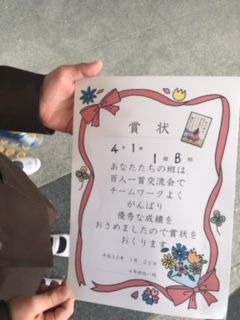 賞状
4年1組
1組B班
あなたたちの班は
百人一首交流会で
チームワークよく
がんばり
優秀な成績を
おさめましたので賞状を
おくります